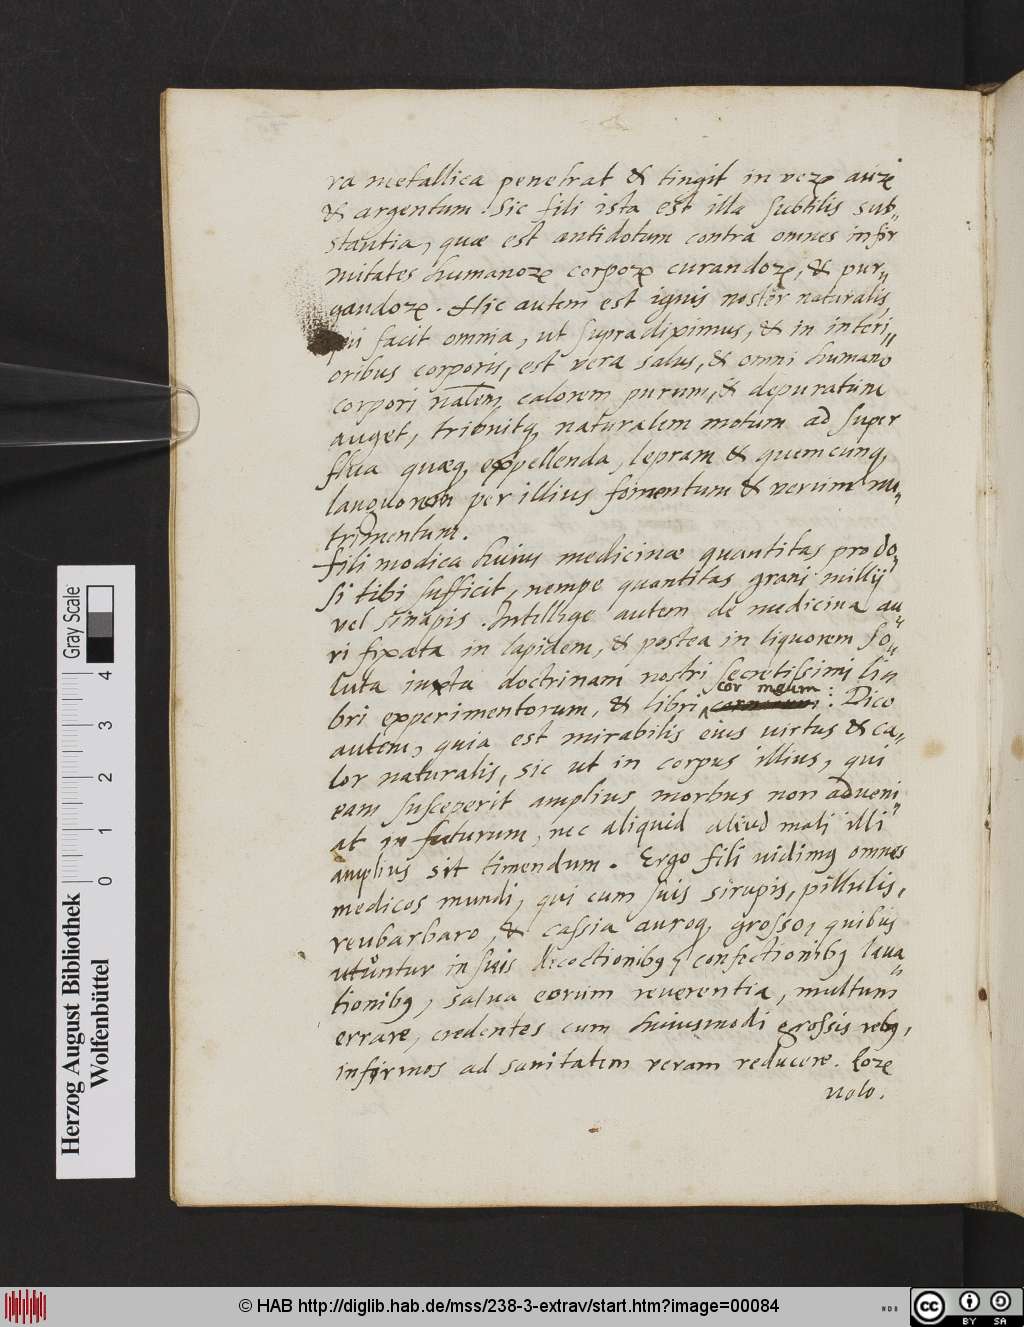 ra metallica penetrat & tingit in veꝝ auꝝ
& argentum. Sic fili ista est illa subtilis sub„
stantia, quæ est antidotum contra omnes infir
mitates humanoꝝ corpoꝝ curandoꝝ, & pur„
gandoꝝ. Hic autem est ignis noster naturalis,
qui facit omnia, ut supra diximus, & in interi„
oribus corporis, est vera salus, & omni humano
corpori nalem̄ calorem purum, & depuratum
auget, tribuitq, naturalem motum ad super
flua quæq, expellenda, lepram & quemcunq,
languorem per illius fomentum & verum nu„
trimentum.
fili modica huius medicinæ quantitas pro do„
si tibi sufficit, nempe quantitas grani millij
vel sinapis. Intellige autem de medicina au„
ri fixata in lapidem, & postea in liquorem so„
luta iuxta doctrinam nostri secretissimi lin
cor meum
bri experimentorum, & libri : Dico
autem, quia est mirabilis eius virtus & ca„
lor naturalis, sic ut in corpus illius, qui
eam susceperit amplius morbus non adveni„
at in futurum, nec aliquid aliud mali illi
amplius sit timendum. Ergo fili uidimꝯ omnes
medicos mundi, qui cum suis sirupis, pillulis,
reubarbaro, & cassia auroq, grosso, quibus
utuntur in suis decoctionibꝯ, confectionibꝯ laua„
tionibꝯ, salua eorum reuerentia, multum
errare, credentes cum huiusmodi grossis rebꝯ,
infirmos ad sanitatem veram reducere. Eoꝝ
nolo.
Herzog August Bibliothek
Wolfenbüttel
Gray Scale
0 1 2 3 4
© HAB http://diglib.hab.de/mss/238-3-extrav/start.htm?image=00084
cc BY SA